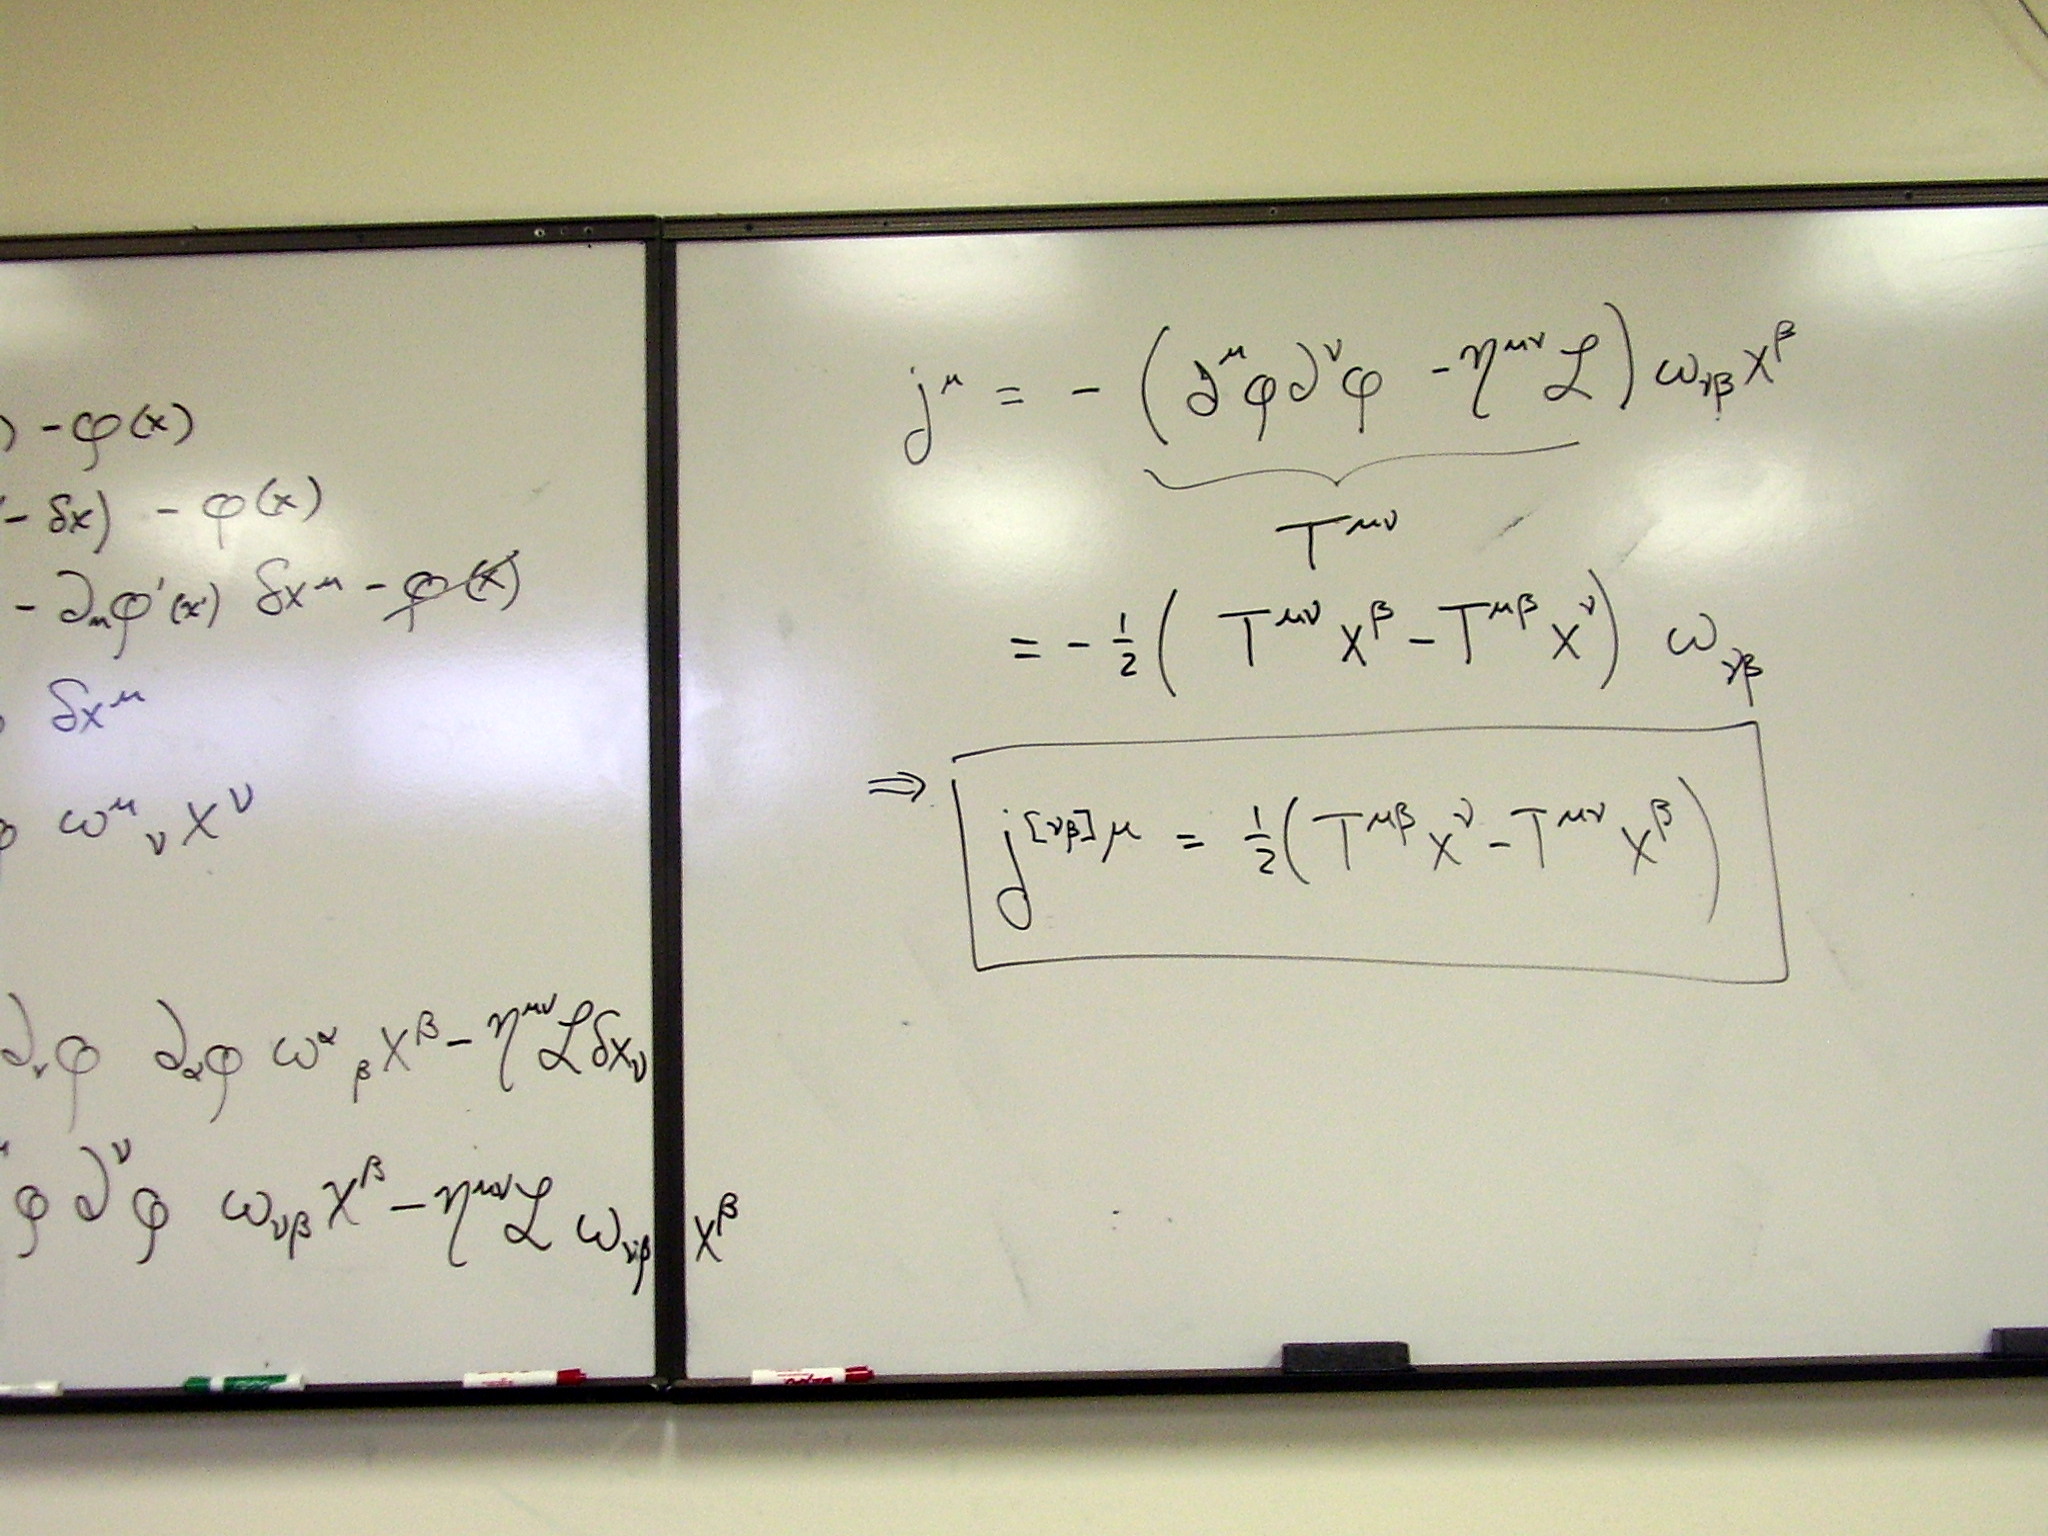 ) - φ(x)
- δx) - φ(x)
- ∂_μφ'(x') δx^μ - φ(x)
δx^μ
ω^μ_ν x^ν
∂_νφ ∂_αφ ω^α_β x^β - η^{μν} ℒ δx_ν
φ ∂^νφ ω_{νβ} x^β - η^{μν} ℒ ω_{νβ} x^β
j^μ = - (∂^μφ∂^νφ - η^{μν}ℒ) ω_{νβ} x^β
T^{μν}
= - ½ (T^{μν} x^β - T^{μβ} x^ν) ω_{νβ}
⇒ j^{[νβ]μ} = ½ (T^{μβ} x^ν - T^{μν} x^β)